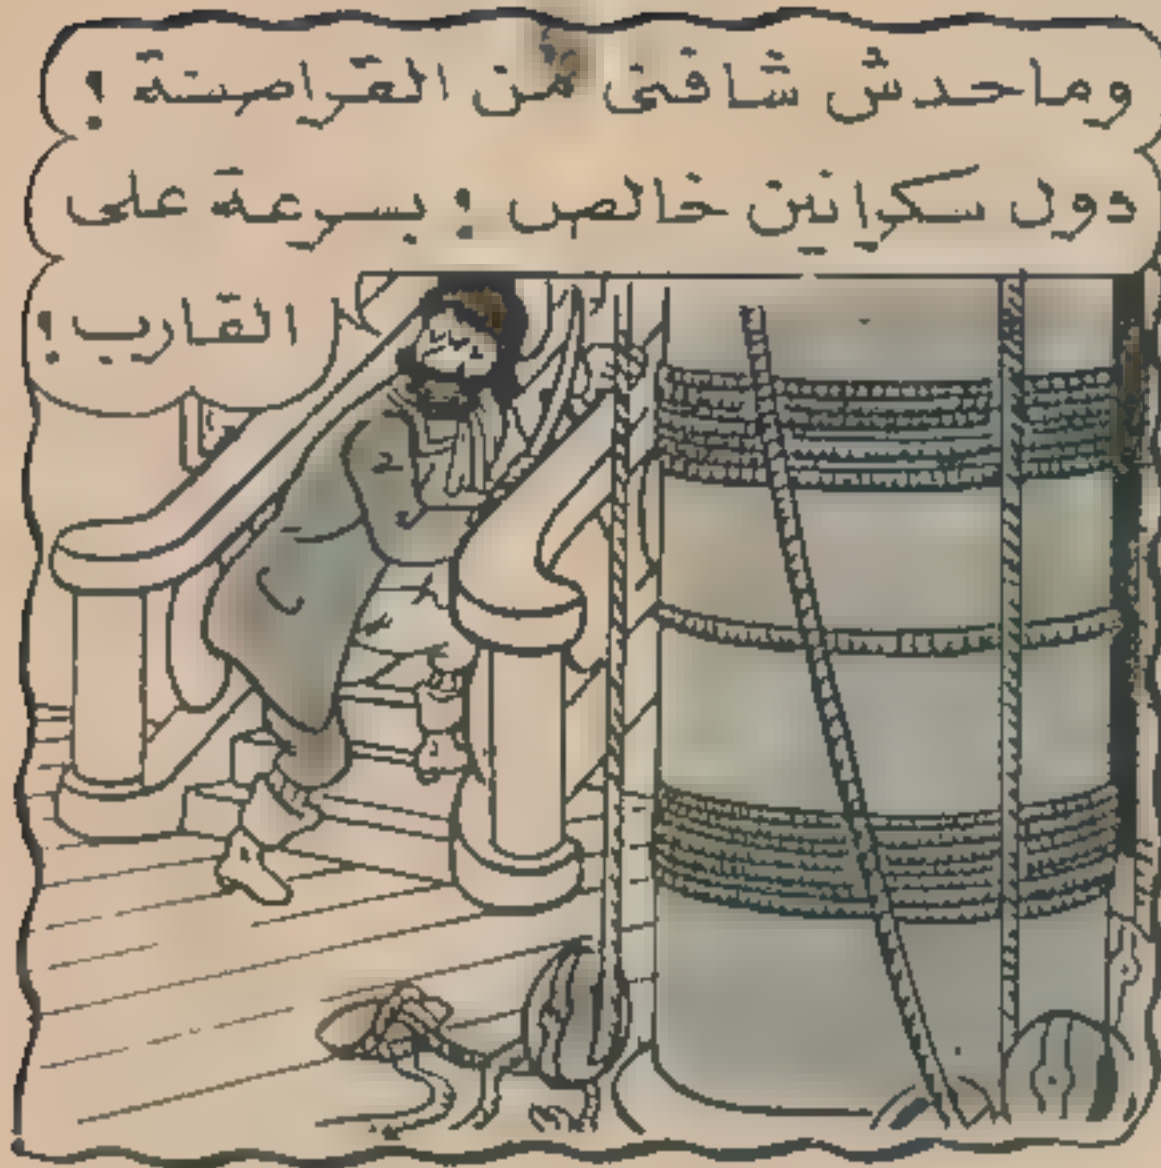 وماحدش شافنى من القراصنة !
دول سكرانين خالص ! بسرعة على
القارب !